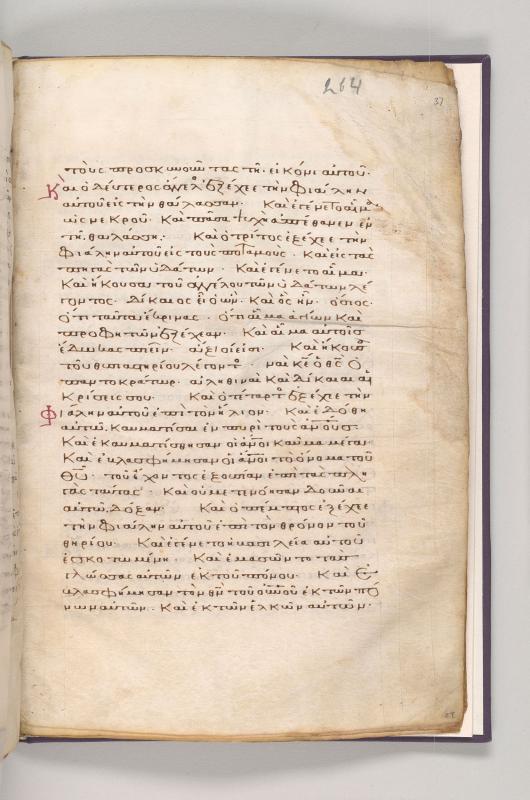 264
37
τοὺς προσκυνοῦντας τῇ εἰκόνι αὐτοῦ·
Καὶ ὁ δεύτερος ἄγγελος ἐξέχεε τὴν φιάλην
αὐτοῦ εἰς τὴν θάλασσαν· Καὶ ἐγένετο αἷμα
ὡς νεκροῦ· Καὶ πᾶσα ψυχὴ ἀπέθανεν ἐν
τῇ θαλάσσῃ· Καὶ ὁ τρίτος ἐξέχεε τὴν
φιάλην αὐτοῦ εἰς τοὺς ποταμούς· Καὶ εἰς τὰς
πηγὰς τῶν ὑδάτων· Καὶ ἐγένετο αἷμα·
Καὶ ἤκουσα τοῦ ἀγγέλου τῶν ὑδάτων λέ
γοντος· Δίκαιος εἶ ὁ ὢν· Καὶ ὃς ἦν· ὅσιος·
Ὅτι ταῦτα ἔκρινας· Ὅτι αἷμα ἁγίων Καὶ
προφητῶν ἐξέχεαν· Καὶ αἷμα αὐτοῖς
ἔδωκας πιεῖν· ἄξιοί εἰσι· Καὶ ἤκουσα
τοῦ θυσιαστηρίου λέγοντος· ναὶ κε ὁ θς ὁ
παντοκράτωρ· ἀληθιναὶ Καὶ δίκαιαι αἱ
κρίσεις σου· Καὶ ὁ τέταρτος ἐξέχεε τὴν
φιάλην αὐτοῦ ἐπὶ τὸν ἥλιον· Καὶ ἐδόθη
αὐτῷ καυματίσαι ἐν πυρὶ τοὺς ἀνους·
Καὶ ἐκαυματίσθησαν οἱ ἀνοι καῦμα μέγα·
Καὶ ἐβλασφήμησαν οἱ ἀνοι τὸ ὄνομα τοῦ
θυ· τοῦ ἔχοντος ἐξουσίαν ἐπὶ τὰς πλη
γὰς ταύτας· Καὶ οὐ μετενόησαν δοῦναι
αὐτῷ δόξαν· Καὶ ὁ πέμπτος ἐξέχεε
τὴν φιάλην αὐτοῦ ἐπὶ τὸν θρόνον τοῦ
θηρίου· Καὶ ἐγένετο ἡ βασιλεία αὐτοῦ
ἐσκοτωμένη· Καὶ ἐμασῶντο τὰς
γλώσσας αὐτῶν ἐκ τοῦ πόνου· Καὶ ἐ
βλασφήμησαν τὸν θν τοῦ οὐνοῦ ἐκ τῶν πό
νων αὐτῶν· Καὶ ἐκ τῶν ἑλκῶν αὐτῶν·